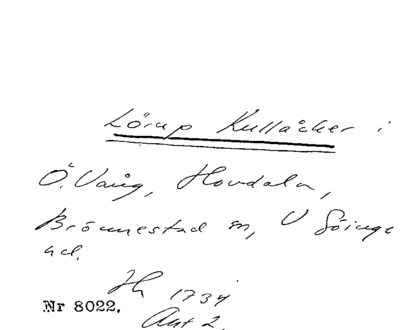 Lörup Kullaåker i
Ö. Vång, Hovdala,
Brönnestad sn, V Göinge
hd.
Jh 1734
Nr 8022. Akt 2.